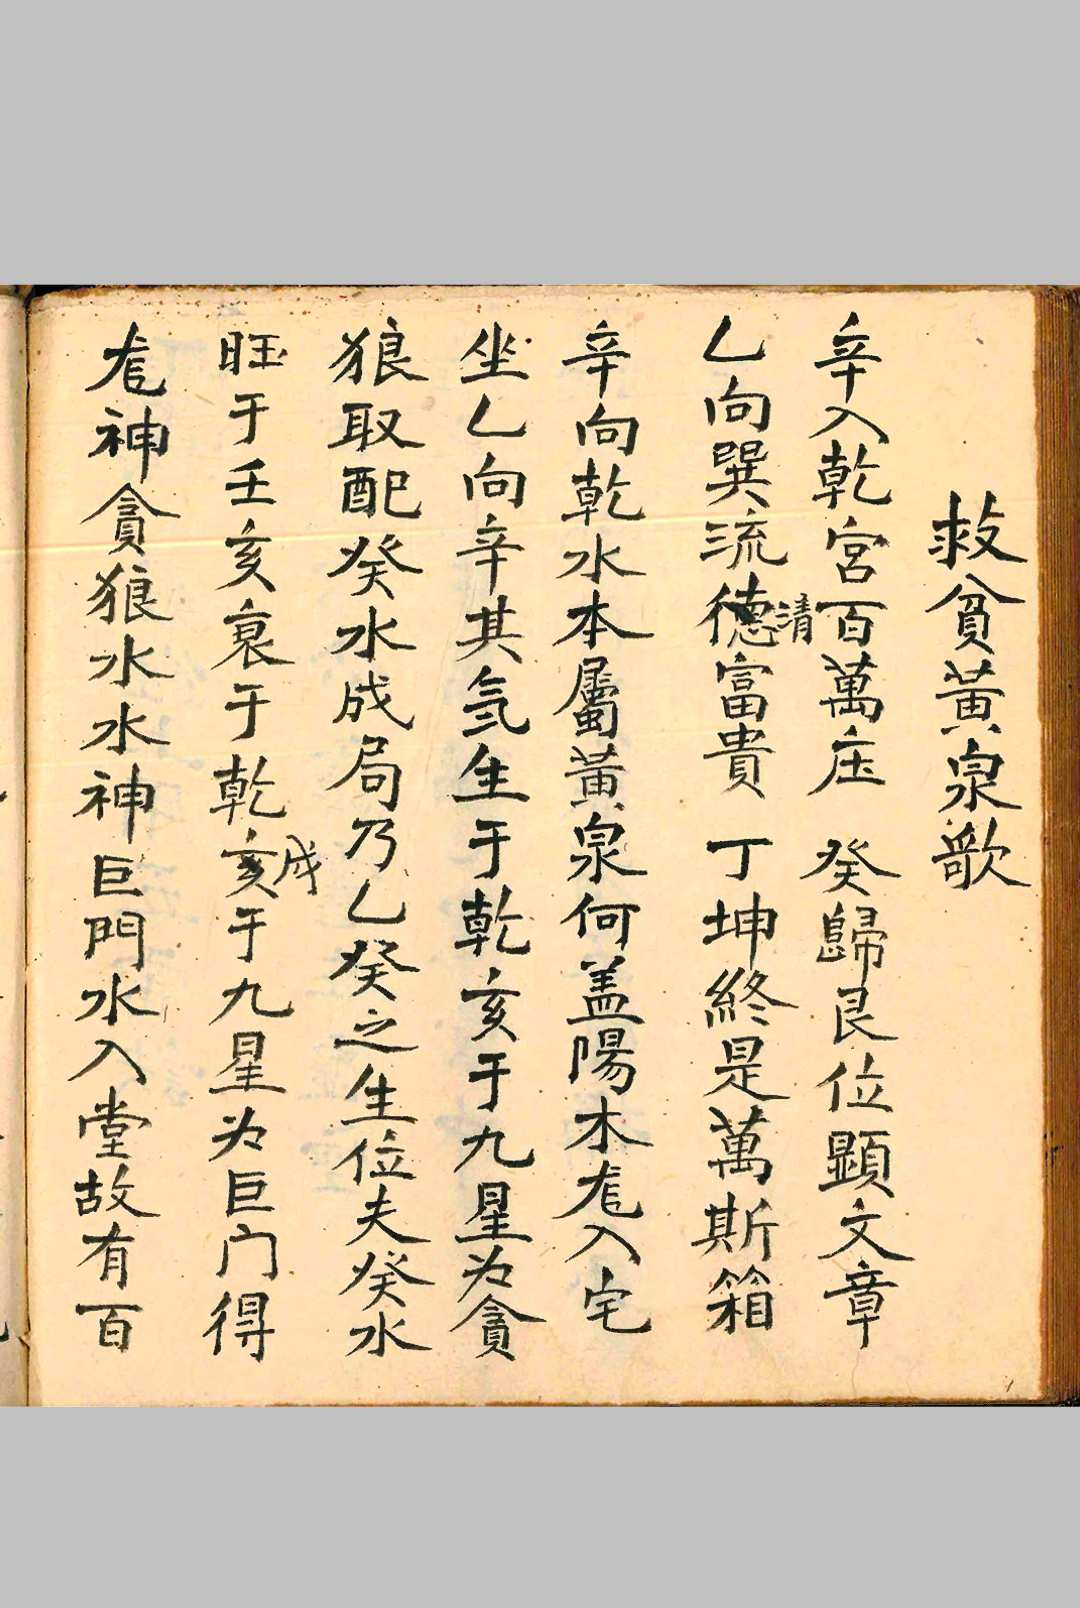 救貧黃泉歌
辛入乾宮百萬庄 癸歸艮位顯文章
乙向巽流德清富貴 丁坤終是萬斯箱
辛向乾水本屬黃泉何盖陽木尨入宅
坐乙向辛其氣生于乾亥于九星为貪
狼取配癸水成局乃乙癸之生位夫癸水
旺于壬亥衰于乾亥成于九星为巨门得
尨神貪狼水水神巨門水入堂故有百